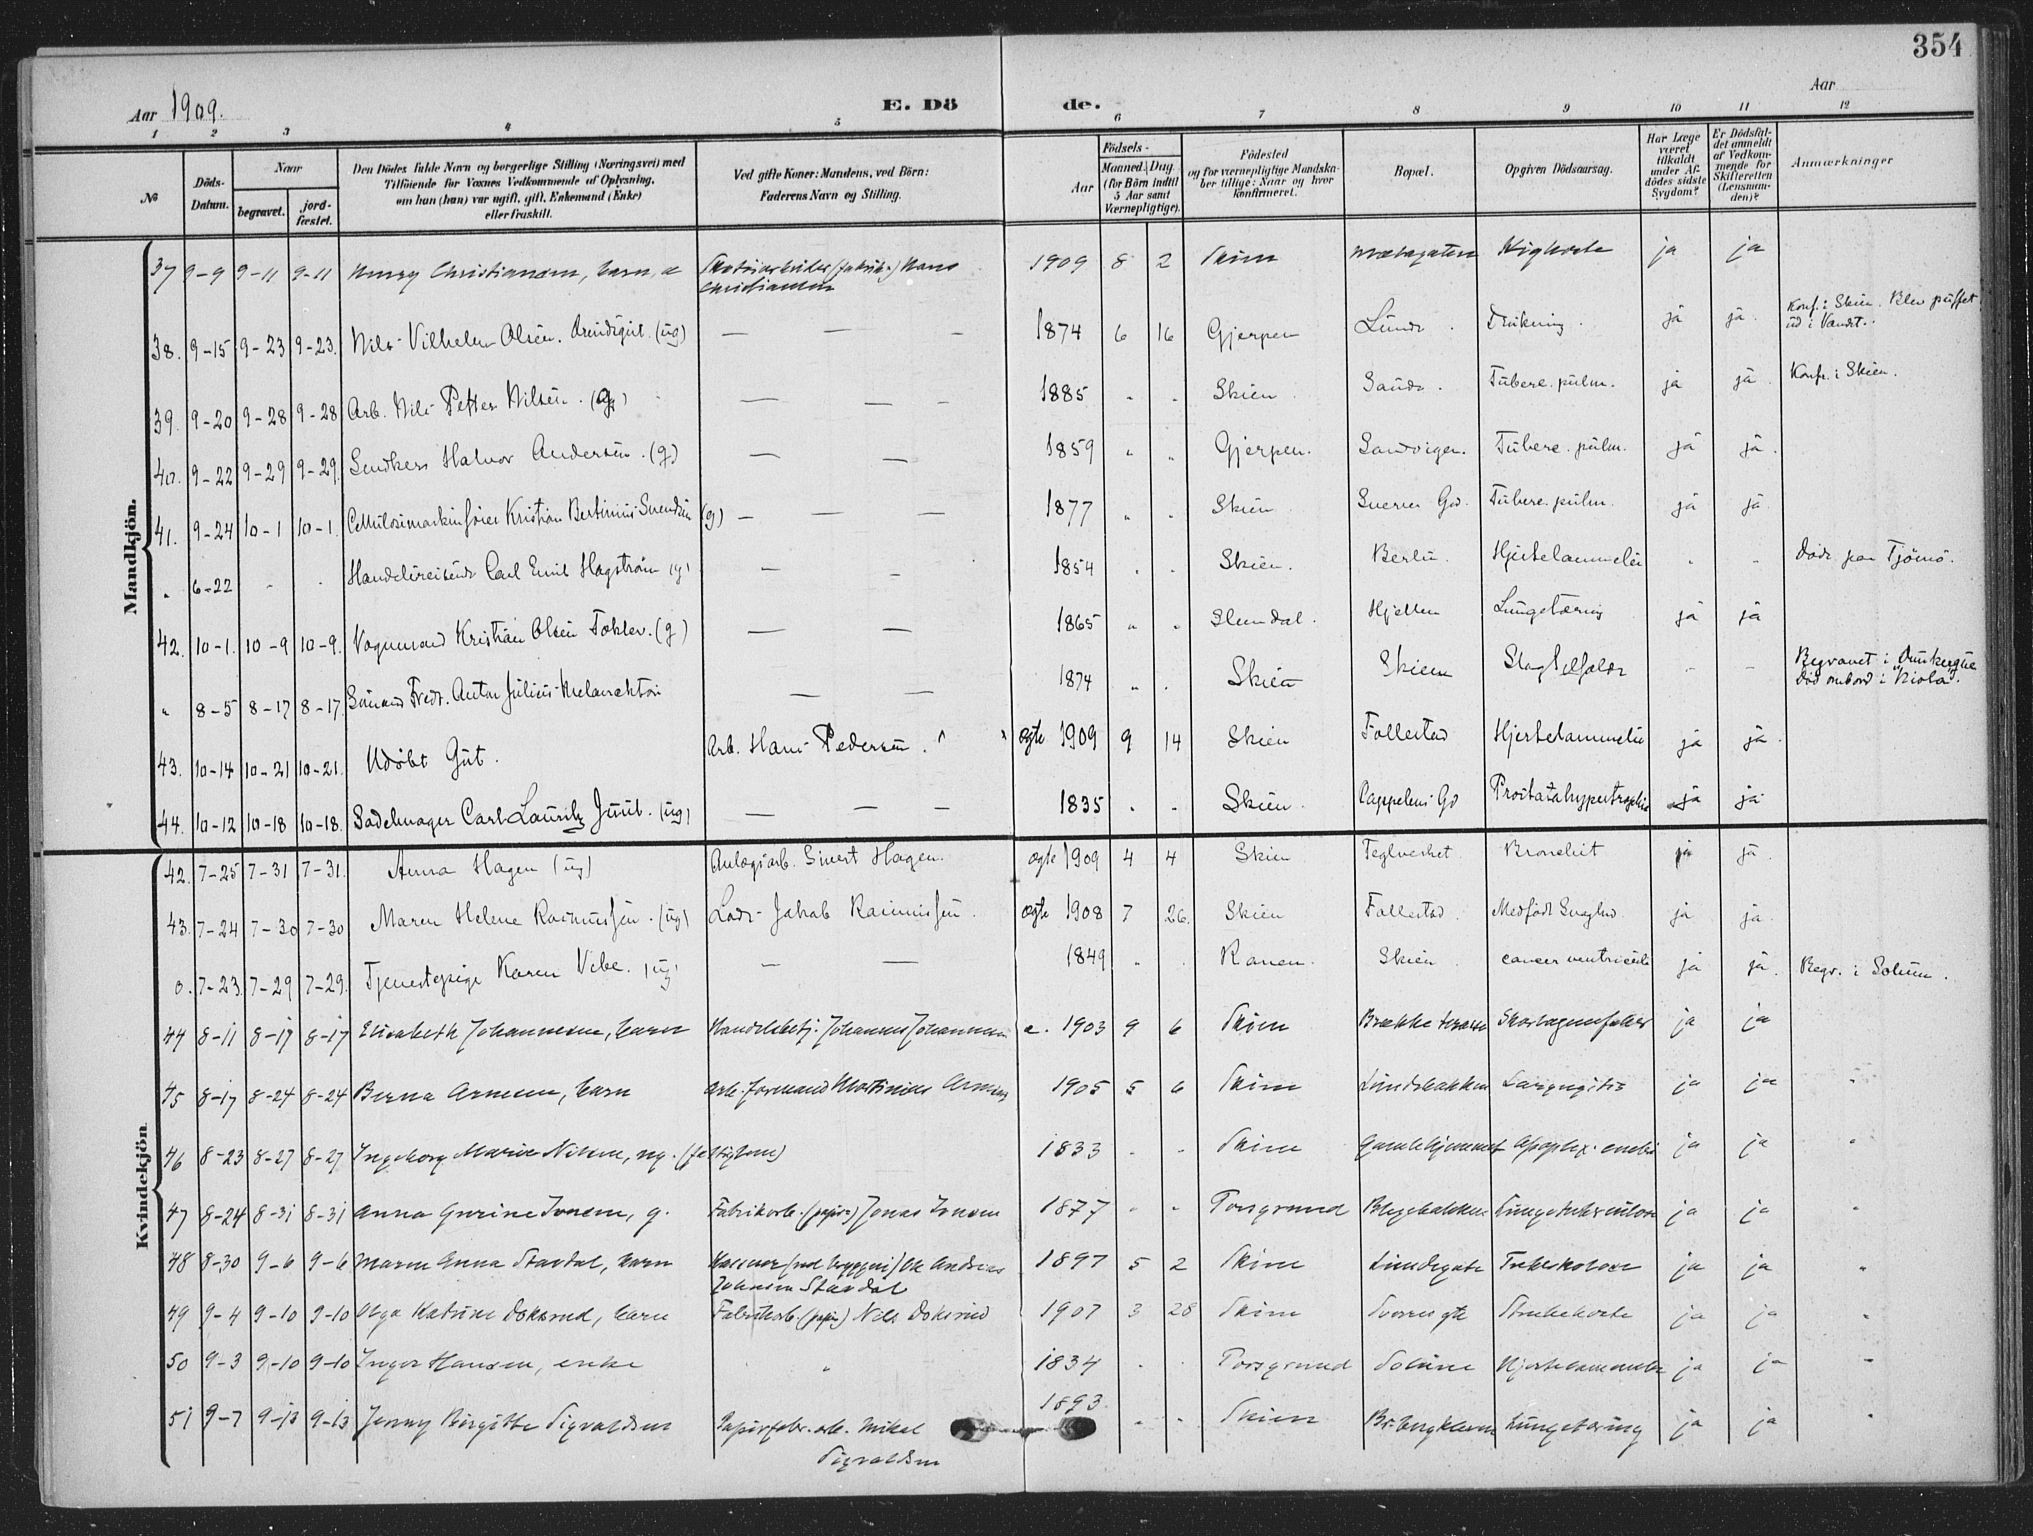 354
Aar 1909.
E. Dö
de.
Aar
1 2 3 4 5 6 7 8 9 10 11 12
№
Döds-Datum.
Naar
begravet.
jord-fæstet.
Den Dödes fulde Navn og borgerlige Stilling (Næringsvei) med
Tilföiende for Voxnes Vedkommende af Oplysning,
om hun (han) var ugift, gift, Enkemand (Enke)
eller fraskilt.
Ved gifte Koner: Mandens, ved Börn:
Faderens Navn og Stilling.
Födsels-
Aar
Maaned. Dag
(for Börn indtil
5 Aar samt
Værnepligtige).
Födested
og for værnepligtige Mandska-
ber tillige: Naar og hvor
konfirmeret.
Bopæl.
Opgiven Dödsaarsag.
Har Læge
været
tilkaldt
under Af-
dödes sidste
Sygdom?
Er Dödsfal-
det anmeldt
af Vedkom-
mende for
Skifteretten
(Lensman-
den)?
Anmærkninger
Mandkjön.
37 9-9 9-11 9-11 Henry Christiansen, barn, æ Hans 1909 8 2 Skien Kighoste ja ja
Christiansen
38. 9-15 9-23 9-23. Nils Vilhelm Olsen. (ug) 1874 6 16 Gjerpen Lunde. Drukning. ja ja. Konf. i Skien. Blev puffet
ud i Vandet.
39. 9-20 9-28 9-28 Arb. Nils Petter Nilsen. (g) 1885 Skien Tuberc. pulm. ja ja. Konf. i Skien.
40. 9-22 9-29 9-29. Halvor Andersen. (g) 1859 Gjerpen. Tuberc. pulm. ja ja.
41. 9-24 10-1 10-1. Kristian Bertinius Svendsen (g) 1877 Skien Tuberc. pulm. ja ja.
" 6-22 Handelsreisende Carl Emil Hagström (g) 1854 Skien. Berlin. Hjertelammelse Døde paa Tjömö.
42. 10-1. 10-9 10-9. Vognmand Kristian Olsen. (g) 1865 Slemdal. Hjellen Lungetæring ja ja
" 8-5 8-17 8-17. Sømand Fredr. Anton Julius Melanchton 1874 Skien Skien Slagtilfælde Begravet i Dunkerque
Død ombord i "Kiola".
43. 10-14 10-21 10-21. Udøbt Gut. Arb. Hans Pedersen. ægte 1909 9 14 Skien Follestad Hjertelammelse ja ja.
44. 10-12 10-18 10-18. Sadelmager Carl Lauritz Juul. (ug) 1835 Skien. Cappelens Gd Prostatahypertrophie ja ja
Kvindekjön
42. 7-25 7-31 7-31. Anna Hagen (ug) Anlægsarb. Sivert Hagen. ægte 1909 4 4 Skien Teglverket Bronchit ja ja.
43. 7-24 7-30 7-30 Maren Helene Rasmussen. (ug) Lods Jakob Rasmussen. ægte 1908 7 26. Skien Follestad. Medfødt Svaghed. ja ja
0. 7-23. 7-29 7-29. Tjenestepige Karen Vibe. (ug) 1849 Ranen. Skien. cancer ventriculi ja ja. Begr. i Solum.
44 8-11 8-17 8-17 Elisabeth Johannesen, barn Handelsbetj. Johannes Johannesen æ. 1903 9 6 Skien Brække terasse Skarlagensfeber ja ja
45 8-17 8-24 8-24 Berna Arnesen, barn Arb. formand Martinius Arnesen 1905 5 6 Skien Lundebakken Laryngitis ja ja
46 8-23 8-27 8-27 Ingeborg Marie Nilsen, ug. (fattiglem) 1833 Skien Gamlehjemmet ja ja
47 8-24 8-31 8-31 Anna Gurine Jonsen, g. Fabrikarb. (papir) Jonas Jonsen 1877 Porsgrund Blegebakken Lungetuberkulose ja ja
48 8-30 9-6 9-6 Maren Anna Stavdal, barn Ole Andreas 1897 5 2 Skien Lundegate Tuberkulose ja ja
Johnsen Stavdal
49 9-4 9-10 9-10 Olga Katrine Doksrud, barn Fabrikarb. (papir) Nils Doksrud 1907 3 28 Skien Strubehoste ja ja
50 9-3 9-10 9-10 Inger Hansen, enke 1834 Porsgrund Solum Hjertelammelse ja ja
51 9-7 9-13 9-13 Jenny Birgitte Sigvaldsen Papirfabr. arb. Mikal 1893. Skien Lungetæring ja ja
Sigvaldsen